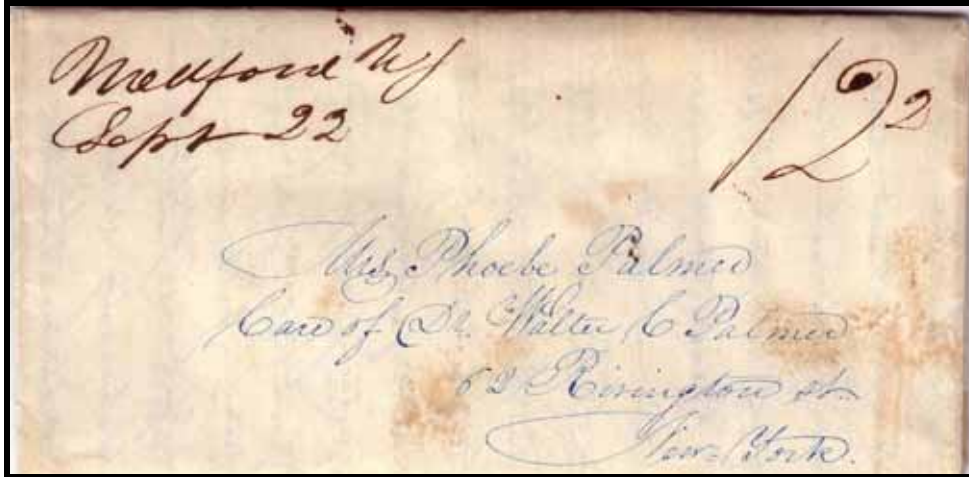 Medford NJ
Sept 22
12 2
Mrs Phoebe Palmer
Care of Dr. Walter C Palmer
62 Rivington st.
New-York.